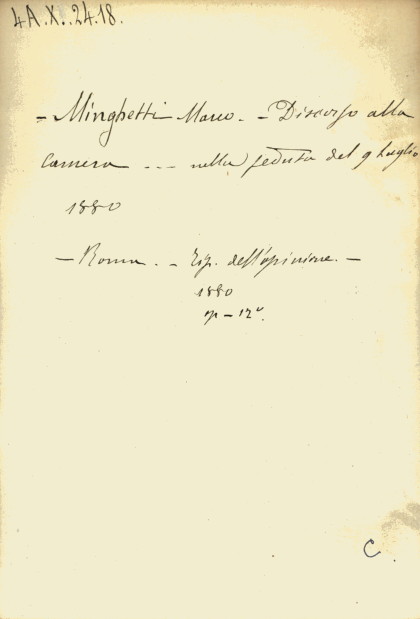 4A.X.24.18.
- Minghetti Marco. - Discorso alla
Camera --- nella seduta del 9 luglio
1880
- Roma. - Tip. dell'opinione. -
1880
op - 12°.
C.